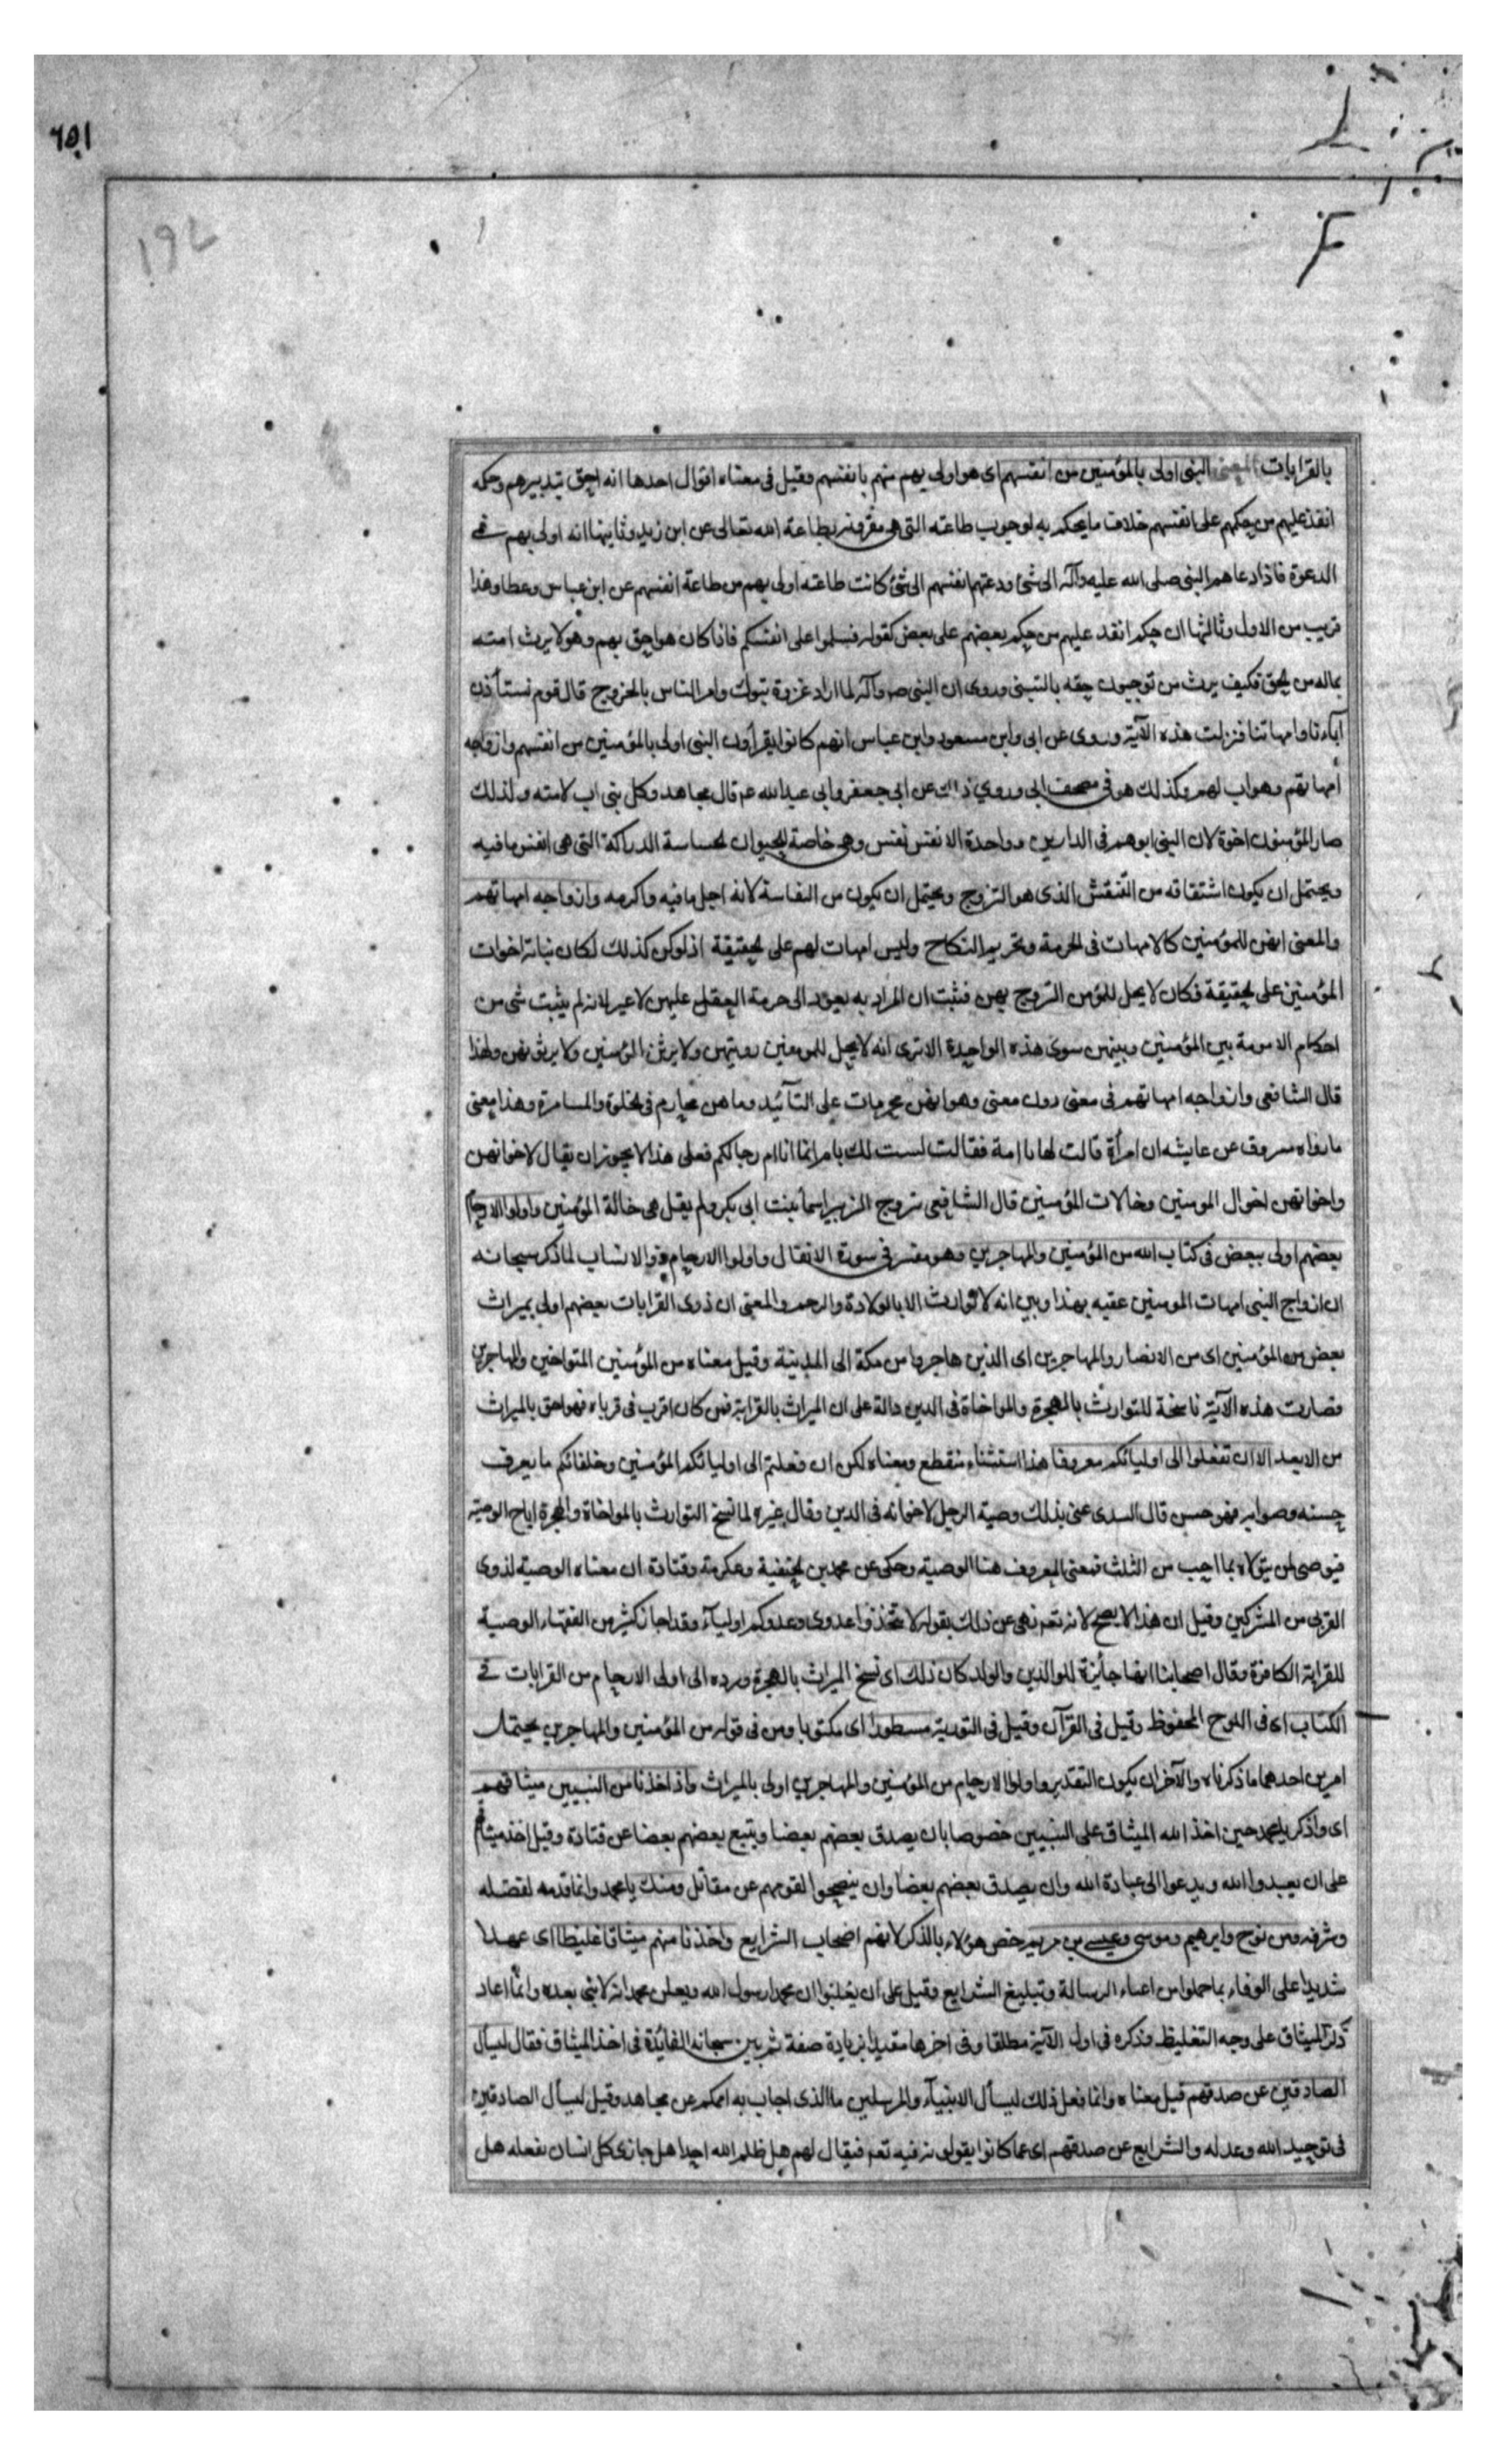 ٦٥١
١٩٤
بالقرابات المعنى النبى اولى بالمؤمنين من انفسهم اى هو اولى بهم منهم بانفسهم وقيل فى معناه اقوال احدها انه احق بتدبيرهم وحكمه
انفذ عليهم من حكمهم على انفسهم خلاف ما يحكم به لوجوب طاعته التى هى مقرونة بطاعة الله تعالى عن ابن زيد وثانيها انه اولى بهم فى
الدعوة فاذا دعاهم النبى صلى الله عليه وآله الى شئ ودعتهم انفسهم الى شئ كانت طاعته اولى بهم من طاعة انفسهم عن ابن عباس وعطا وهذا
قريب من الاول وثالثها ان حكمه انفد عليهم من حكم بعضهم على بعض كقوله فسلموا على انفسكم فاذا كان هو احق بهم وهو لا يرث امته
بماله من الحق فكيف يرث من توجبون حقه بالتبنى وروى ان النبى صم وآله لما اراد غزوة تبوك وامر الناس بالخروج قال قوم نستأذن
آباءنا وامهاتنا فنزلت هذه الآية وروى عن ابى وابن مسعود وابن عباس انهم كانوا يقرأون النبى اولى بالمؤمنين من انفسهم وازواجه
أمهاتهم وهو اب لهم وكذلك هو فى مصحف ابى وروي ذلك عن ابى جعفر وابى عبد الله ع قال مجاهد وكل نبى اب لامته ولذلك
صار المؤمنون اخوة لان النبى ابوهم فى الدارين وواحدة الانفس نفس وهى خاصة الحيوان الحساسة الدراكة التى هى انفس ما فيه
ويحتمل ان يكون اشتقاقه من التنفس الذى هو التروح ويحتمل ان يكون من النفاسة لانه اجل ما فيه واكرمه وازواجه امهاتهم
والمعنى انهن للمؤمنين كالامهات فى الحرمة وتحريم النكاح وليس امهات لهم على الحقيقة اذ لو كن كذلك لكان بناته اخوات
المؤمنين على الحقيقة فكان لا يحل للمؤمن التزوج بهن فثبت ان المراد به يعود الى حرمة العقد عليهن لا غير لانه لم يثبت شى من
احكام الامومة بين المؤمنين وبينهن سوى هذه الواحدة الا ترى انه لا يحل للمومنين رويتهن ولا يرثن المؤمنين ولا يرثونهن ولهذا
قال الشافعى وازواجه امهاتهم فى معنى دون معنى وهو انهن محرمات على التأئيد وما هن محارم فى الخلوة والمسامرة وهذا معنى
ما رواه مسروق عن عايشه ان امرأة قالت لها يا امة فقالت لست لك بام انما انا ام رجالكم فعلى هذا لا يجوز ان يقال لاخوانهن
واخواتهن اخوال المومنين وخالات المؤمنين قال الشافعى تزوج الزبير اسما بنت ابى بكر ولم يقل هى خالة المؤمنين واولوا الارحام
بعضهم اولى ببعض فى كتاب الله من المؤمنين والمهاجرين وهو مفسر فى سورة الانفال واولوا الارحام ذوو الانساب لما ذكر سبحانه
ان ازواج النبى امهات المومنين عقبه بهذا وبين انه لا توارث الا بالولادة والرحم والمعنى ان ذوى القرابات بعضهم اولى بميراث
بعض من المؤمنين اى من الانصار والمهاجرين اى الذين هاجروا من مكة الى المدينة وقيل معناه من المؤمنين المتواخين والمهاجرين
فصارت هذه الآية ناسخة للتوارث بالهجرة والمواخاة فى الدين دالة على ان الميراث بالقرابة فمن كان اقرب فى قرباه فهو احق بالميراث
من الابعد الا ان تفعلوا الى اوليائكم معروفا هذا استثناء منقطع ومعناه لكن ان فعلتم الى اوليائكم المؤمنين وخلفائكم ما يعرف
حسنه وصوابه فهو حسن قال السدى عنى بذلك وصية الرجل لاخوانه فى الدين وقال غيره لما نسخ التوارث بالمواخاة والهجرة اباح الوصية
فيوصى لمن يتولاه بما احب من الثلث فمعنى المعروف هنا الوصية وحكى عن محمد بن الحنفية وعكرمة وقتادة ان معناه الوصية لذوى
القربى من المشركين وقيل ان هذا لا يصح لانه تعم نهى عن ذلك بقوله لا تتخذوا عدوى وعدوكم اولياء وقد اجاز كثير من الفقهاء الوصية
للقرابة الكافرة وقال اصحابنا انها جائزة للوالدين والولد كان ذلك اى نسخ الميراث بالهجرة ورده الى اولى الارحام من القرابات فى
الكتاب اى فى اللوح المحفوظ وقيل فى القرآن وقيل فى التورية مسطورا اى مكتوبا ومن فى قوله من المؤمنين والمهاجرين يحتمل
امرين احدهما ما ذكرناه والآخر ان يكون التقدير واولوا الارحام من المؤمنين والمهاجرين اولى بالميراث واذ اخذنا من النبيين ميثاقهم
اى واذكر يا محمد حين اخذ الله الميثاق على النبيين خصوصا بان يصدق بعضهم بعضا ويتبع بعضهم بعضا عن قتادة وقيل اخذ ميثاقهم
على ان يعبدوا الله ويدعوا الى عبادة الله وان يصدق بعضهم بعضا وان ينصحوا لقومهم عن مقاتل ومنك يا محمد وانما قدمه لفضله
وشرفه ومن نوح وابرهيم وموسى وعيسى بن مريم خص هؤلاء بالذكر لانهم اصحاب الشرايع واخذنا منهم ميثاقا غليظا اى عهدا
شديدا على الوفاء بما حملوا من اعباء الرسالة وتبليغ الشرايع وقيل على ان يعلنوا ان محمدا رسول الله ويعلن محمد انه لا نبى بعده وانما اعاد
ذكر الميثاق على وجه التغليظ فذكره فى اول الآية مطلقا وفى اخرها مقيدا بزيادة صفة ثم بين سبحانه الفائدة فى اخذ الميثاق فقال ليسأل
الصادقين عن صدقهم قيل معناه وانما فعل ذلك ليسأل الانبياء والمرسلين ما الذى اجاب به اممكم عن مجاهد وقيل ليسأل الصادقين
فى توحيد الله وعدله والشرايع عن صدقهم اى عما كانوا يقولونه فيه تعم فيقال لهم هل ظلم الله احدا هل جازى كل انسان بفعله هل